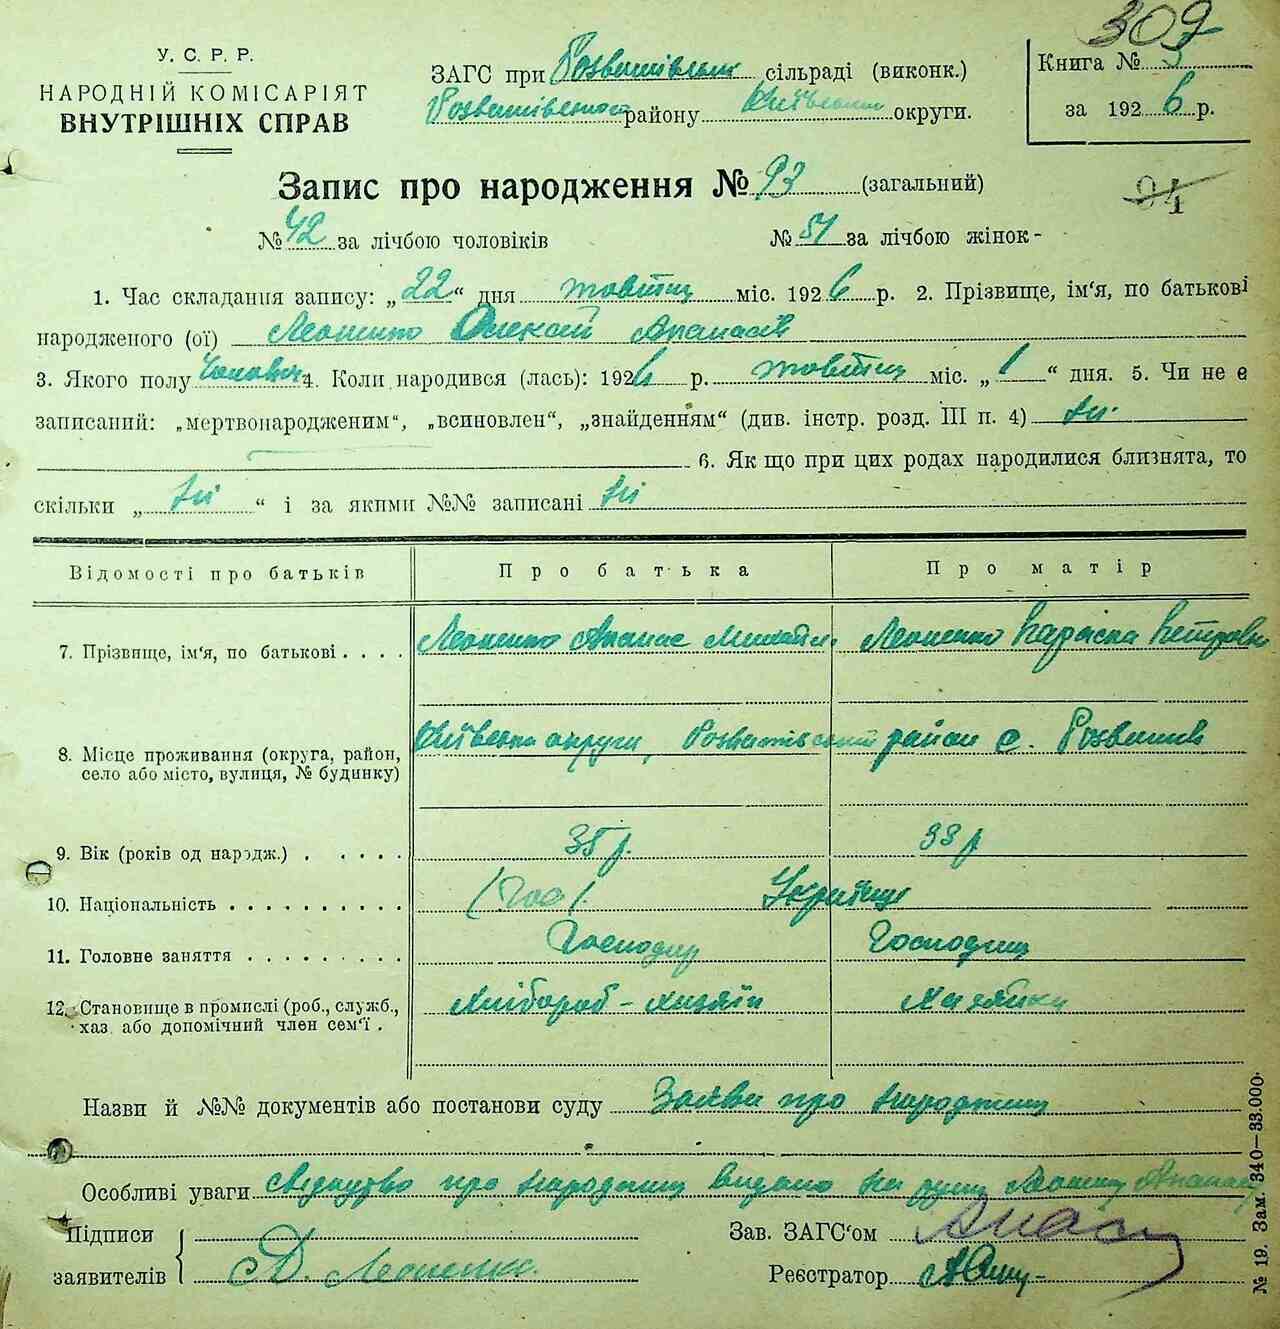 309
У. С. Р. Р.
НАРОДНІЙ КОМІСАРІЯТ
ВНУТРІШНІХ СПРАВ
ЗАГС при Розваживськ сільраді (виконк.)
району Київськ округи.
Книга №
за 1926 р.
Запис про народження № 93 (загальний)
94
№ 42 за лічбою чоловіків № 51 за лічбою жінок -
1. Час складання запису: „22“ дня жовтня міс. 1926 р. 2. Прізвище, ім‘я, по батькові
народженого (ої) Олексій Апанасів
3. Якого полу 4. Коли народився (лась): 1926 р. жовтня міс. „1“ дня. 5. Чи не є
записаний: „мертвонародженим“, „всиновлен“, „знайденням“ (див. інстр. розд. III п. 4) ні
6. Як що при цих родах народилися близнята, то
скільки „ні“ і за якими №№ записані ні
Відомості про батьків Про батька Про матір
7. Прізвище, ім‘я, по батькові . . . . Апанас Петровн
8. Місце проживання (округа, район,
село або місто, вулиця, № будинку)
Київська округи, район с. Розважів
9. Вік (років од народж.) . . . . . 35 р. 33 р
10. Національність . . . . . . . . . . Українці
11. Головне заняття . . . . . . . . . Господар Господиня
12. Становище в промислі (роб., служб.,
хаз. або допомічний член сем‘ї .
Хлібороб - хазяїн Хазяйка
Назви й №№ документів або постанови суду Заява про народження
Особливі уваги Свідоцтво про народження видано на руки
Підписи
заявителів
Зав. ЗАГС‘ом
Реєстратор
№ 19. Зам. 340—33.000.